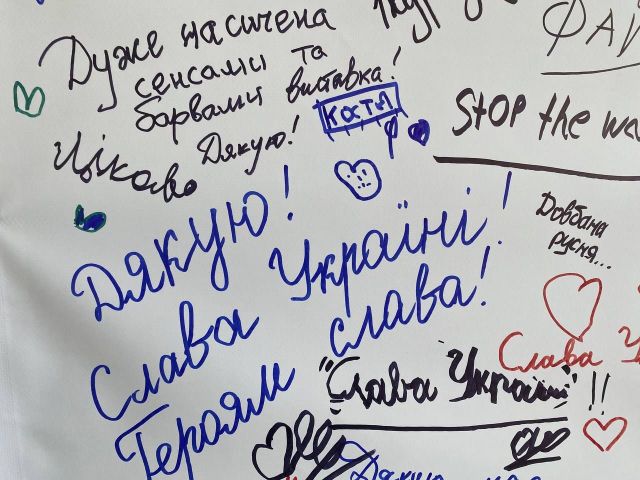 Дуже насичена
сенсами та
барвами виставка!
Цікаво Дякую!
Костя
STOP the wa
Дякую!
Слава Україні!
Героям слава!
Довбана
русня...
Слава У
"Слава Україні"!!
Дякую